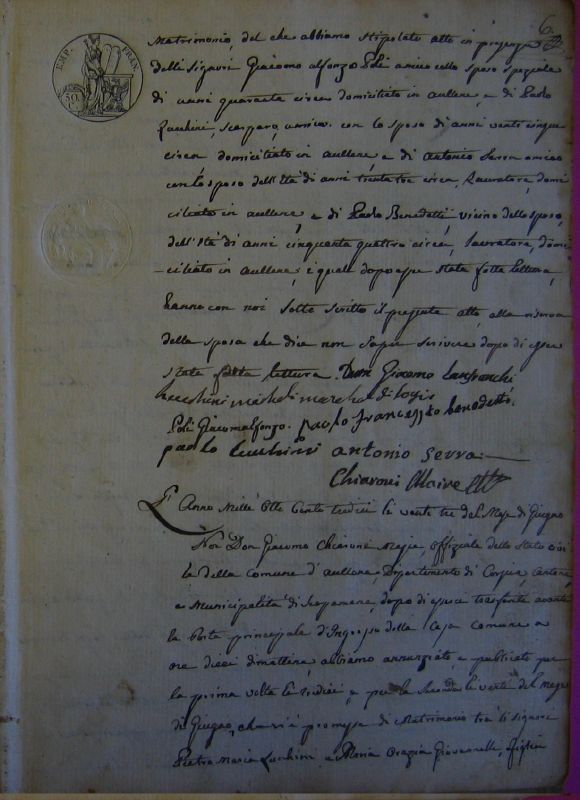 6.
EMP. FRAN.
50. C.
Matrimonio, del che abbiamo stipolato atto in presenza
delli Signori Giacomo Alfonzo Poli amico collo sposo
di anni quaranta circa domiciliato in aullene, e di Paolo
Lucchini, amico con lo sposo di anni venti cinque
circa domiciliato in aullene, e di Antonio Serra amico
con lo sposo dell'Età di anni trenta tre circa, Lavoratore, domi
ciliato in aullene, e di Paolo Benedetti, vicino dello sposo,
dell'Età di anni cinquanta quattro circa, lavoratore, domi
-ciliato in Aullene; i quali dopo stata fatta lettura,
hanno con noi sotto scritto il presente atto, alla riserva
della sposa che dice non saper scrivere dopo di esser
stata fatta lettura. Don Giacomo Lanfranchi
Lucchini
Poli Giacomalfonzo. paolo francesco benedetto.
paolo Lucchini antonio serra
Chiaroni Maire
L'Anno Mille Otto Cento tredici li vente tre del Mese di Giugno
Noi Don Giacomo Chiaroni Maire, Offiziale dello Stato civi
le della Comune d'Aullene, Dipartimento di Corsica, Cantone
e Municipalità di Scopamene, dopo di esserci trasferito avante
la Porta principale d'Ingresso della Casa Comune a
ore dieci di mattina, abbiamo annunziato e publicato per
la prima volta li tredici, e per la seconda li vente del Mese
di Giugno, che vi è promessa di Matrimonio trà li signori
Pietro Maria Lucchini e Maria Orazia Giovannelli, figlia